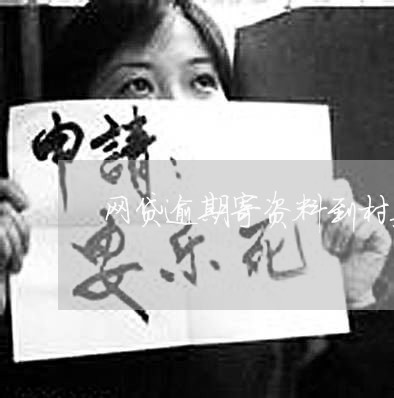 申請：
网贷逾期寄资料到村
安乐死